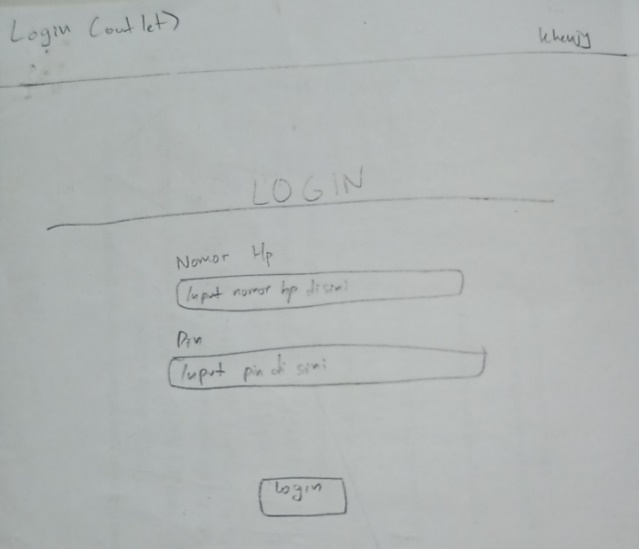 Login (outlet)
LOGIN
Nomor Hp
Input nomor hp disini
Pin
Input pin di sini
Login